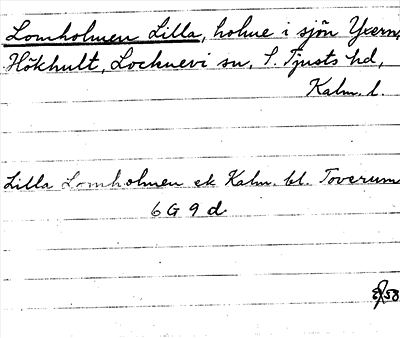 Lomholmen Lilla, holme i sjön Yxern,
Hökhult, Locknevi sn, S. Tjusts hd,
Kalm. l.
Lilla Lomholmen ek Kalm. bl. Toverum
6 G 9 d
58